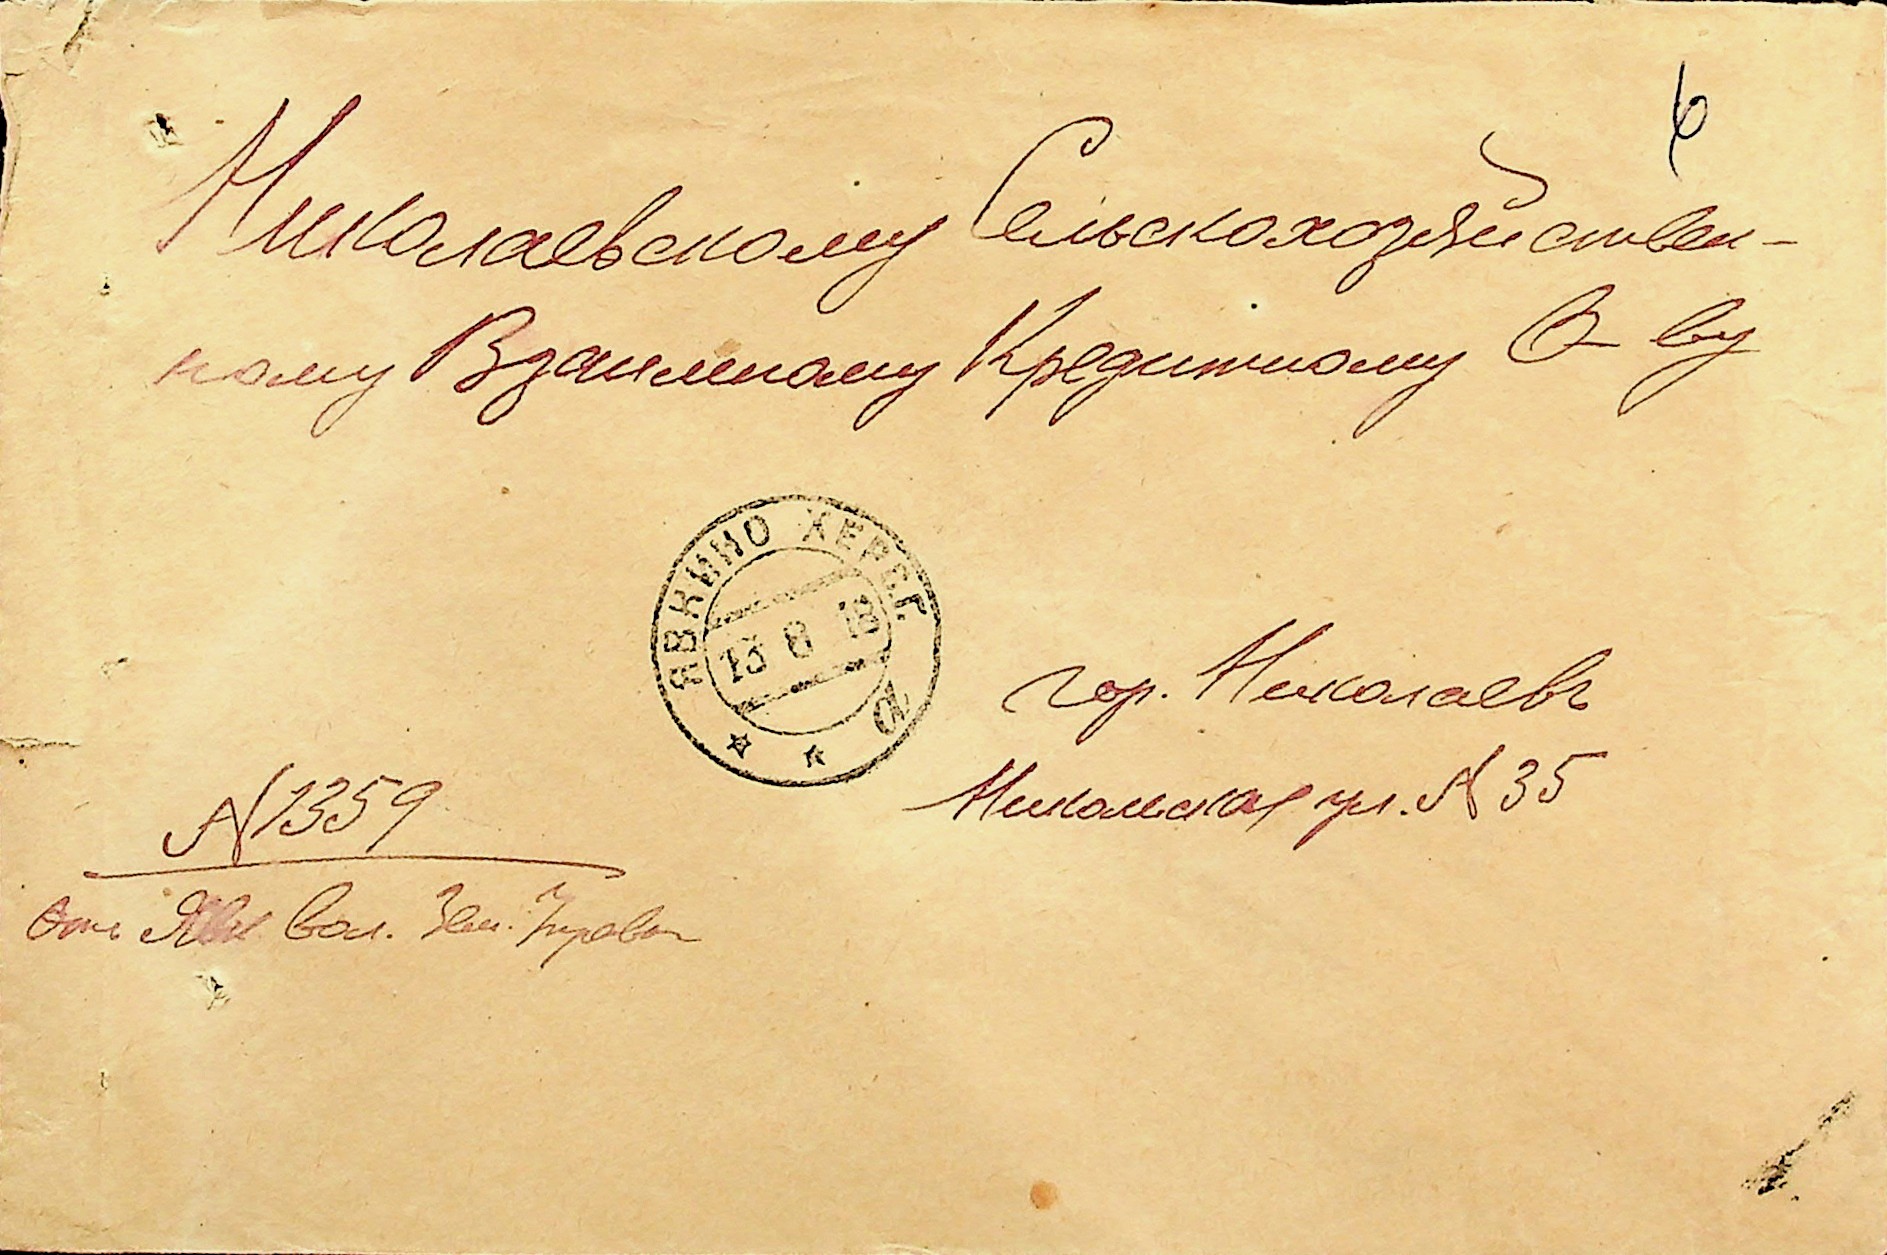 6
Николаевскому Сельскохозяйствен-
ному Взаимному Кредитному О-ву
ЯВКИНО ХЕРС.Г.
13 8 18
гор. Николаевъ
Никольская ул. № 35
№ 1359
Отъ Явк вол. Зем. Управы